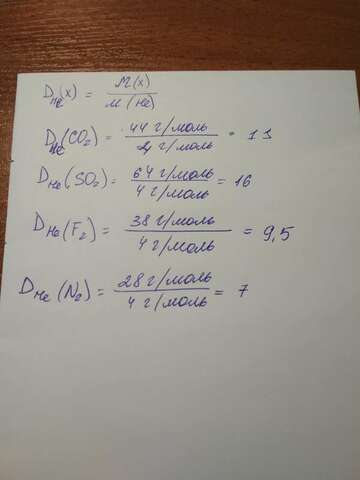 D_He(x) = M(x) / M(He)
D_He(CO₂) = 44 г/моль / 4 г/моль = 11
D_He(SO₂) = 64 г/моль / 4 г/моль = 16
D_He(F₂) = 38 г/моль / 4 г/моль = 9,5
D_He(N₂) = 28 г/моль / 4 г/моль = 7